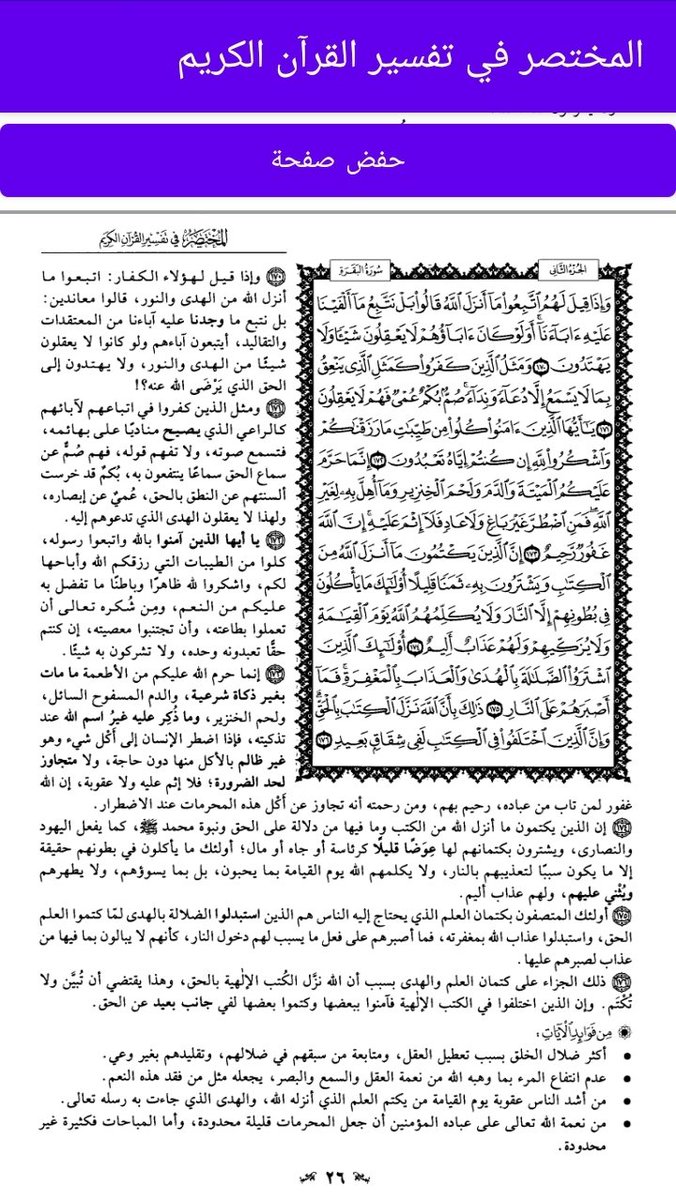 المختصر في تفسير القرآن الكريم
حفض صفحة
المختصر في تفسير القرآن الكريم
الجزء الثاني
سورة البقرة
وَإِذَا قِيلَ لَهُمُ ٱتَّبِعُوا۟ مَآ أَنزَلَ ٱللَّهُ قَالُوا۟ بَلْ نَتَّبِعُ مَآ أَلْفَيْنَا
عَلَيْهِ ءَابَآءَنَآ أَوَلَوْ كَانَ ءَابَآؤُهُمْ لَا يَعْقِلُونَ شَيْـًٔا وَلَا
يَهْتَدُونَ ١٧٠ وَمَثَلُ ٱلَّذِينَ كَفَرُوا۟ كَمَثَلِ ٱلَّذِى يَنْعِقُ
بِمَا لَا يَسْمَعُ إِلَّا دُعَآءً وَنِدَآءً صُمٌّۢ بُكْمٌ عُمْىٌ فَهُمْ لَا يَعْقِلُونَ
١٧١ يَـٰٓأَيُّهَا ٱلَّذِينَ ءَامَنُوا۟ كُلُوا۟ مِن طَيِّبَـٰتِ مَا رَزَقْنَـٰكُمْ
وَٱشْكُرُوا۟ لِلَّهِ إِن كُنتُمْ إِيَّاهُ تَعْبُدُونَ ١٧٢ إِنَّمَا حَرَّمَ
عَلَيْكُمُ ٱلْمَيْتَةَ وَٱلدَّمَ وَلَحْمَ ٱلْخِنزِيرِ وَمَآ أُهِلَّ بِهِۦ لِغَيْرِ
ٱللَّهِ فَمَنِ ٱضْطُرَّ غَيْرَ بَاغٍ وَلَا عَادٍ فَلَآ إِثْمَ عَلَيْهِ إِنَّ ٱللَّهَ
غَفُورٌ رَّحِيمٌ ١٧٣ إِنَّ ٱلَّذِينَ يَكْتُمُونَ مَآ أَنزَلَ ٱللَّهُ مِنَ
ٱلْكِتَـٰبِ وَيَشْتَرُونَ بِهِۦ ثَمَنًا قَلِيلًا أُو۟لَـٰٓئِكَ مَا يَأْكُلُونَ
فِى بُطُونِهِمْ إِلَّا ٱلنَّارَ وَلَا يُكَلِّمُهُمُ ٱللَّهُ يَوْمَ ٱلْقِيَـٰمَةِ
وَلَا يُزَكِّيهِمْ وَلَهُمْ عَذَابٌ أَلِيمٌ ١٧٤ أُو۟لَـٰٓئِكَ ٱلَّذِينَ
ٱشْتَرَوُا۟ ٱلضَّلَـٰلَةَ بِٱلْهُدَىٰ وَٱلْعَذَابَ بِٱلْمَغْفِرَةِ فَمَآ
أَصْبَرَهُمْ عَلَى ٱلنَّارِ ١٧٥ ذَٰلِكَ بِأَنَّ ٱللَّهَ نَزَّلَ ٱلْكِتَـٰبَ بِٱلْحَقِّ
وَإِنَّ ٱلَّذِينَ ٱخْتَلَفُوا۟ فِى ٱلْكِتَـٰبِ لَفِى شِقَاقٍۭ بَعِيدٍ ١٧٦
١٧٠ وإذا قيل لهؤلاء الكفار: اتبعوا ما
أنزل الله من الهدى والنور، قالوا معاندين:
بل نتبع ما وجدنا عليه آباءنا من المعتقدات
والتقاليد، أيتبعون آباءهم ولو كانوا لا يعقلون
شيئًا من الهدى والنور، ولا يهتدون إلى
الحق الذي يَرْضَى الله عنه؟!
١٧١ ومثل الذين كفروا في اتباعهم لآبائهم
كالراعي الذي يصيح مناديًا على بهائمه،
فتسمع صوته، ولا تفهم قوله، فهم صُمٌّ عن
سماع الحق سماعًا ينتفعون به، بُكمٌ قد خرست
ألسنتهم عن النطق بالحق، عُميٌ عن إبصاره،
ولهذا لا يعقلون الهدى الذي تدعوهم إليه.
١٧٢ يا أيها الذين آمنوا بالله واتبعوا رسوله،
كلوا من الطيبات التي رزقكم الله وأباحها
لكم، واشكروا لله ظاهرًا وباطنًا ما تفضل به
عليكم من النعم، ومِن شُكره تعالى أن
تعملوا بطاعته، وأن تجتنبوا معصيته، إن كنتم
حقًّا تعبدونه وحده، ولا تشركون به شيئًا.
١٧٣ إنما حرم الله عليكم من الأطعمة ما مات
بغير ذكاة شرعية، والدم المسفوح السائل،
ولحم الخنزير، وما ذُكِر عليه غيرُ اسم الله عند
تذكيته، فإذا اضطر الإنسان إلى أكْل شيء وهو
غير ظالم بالأكل منها دون حاجة، ولا متجاوز
لحد الضرورة؛ فلا إثم عليه ولا عقوبة، إن الله
غفور لمن تاب من عباده، رحيم بهم، ومن رحمته أنه تجاوز عن أَكْل هذه المحرمات عند الاضطرار.
١٧٤ إن الذين يكتمون ما أنزل الله من الكتب وما فيها من دلالة على الحق ونبوة محمد ﷺ، كما يفعل اليهود
والنصارى، ويشترون بكتمانهم لها عِوَضًا قليلًا كرئاسة أو جاه أو مال؛ أولئك ما يأكلون في بطونهم حقيقة
إلا ما يكون سببًا لتعذيبهم بالنار، ولا يكلمهم الله يوم القيامة بما يحبون، بل بما يسوؤهم، ولا يطهرهم
ويُثْني عليهم، ولهم عذاب أليم.
١٧٥ أولئك المتصفون بكتمان العلم الذي يحتاج إليه الناس هم الذين استبدلوا الضلالة بالهدى لمّا كتموا العلم
الحق، واستبدلوا عذاب الله بمغفرته، فما أصبرهم على فعل ما يسبب لهم دخول النار، كأنهم لا يبالون بما فيها من
عذاب لصبرهم عليها.
١٧٦ ذلك الجزاء على كتمان العلم والهدى بسبب أن الله نزَّل الكُتب الإلٰهية بالحق، وهذا يقتضي أن تُبيَّن ولا
تُكْتَم. وإن الذين اختلفوا في الكتب الإلٰهية فآمنوا ببعضها وكتموا بعضها لفي جانب بعيد عن الحق.
من فوائد الآيات:
• أكثر ضلال الخلق بسبب تعطيل العقل، ومتابعة من سبقهم في ضلالهم، وتقليدهم بغير وعي.
• عدم انتفاع المرء بما وهبه الله من نعمة العقل والسمع والبصر، يجعله مثل من فقد هذه النعم.
• من أشد الناس عقوبة يوم القيامة من يكتم العلم الذي أنزله الله، والهدى الذي جاءت به رسله تعالى.
• من نعمة الله تعالى على عباده المؤمنين أن جعل المحرمات قليلة محدودة، وأما المباحات فكثيرة غير
محدودة.
٢٦